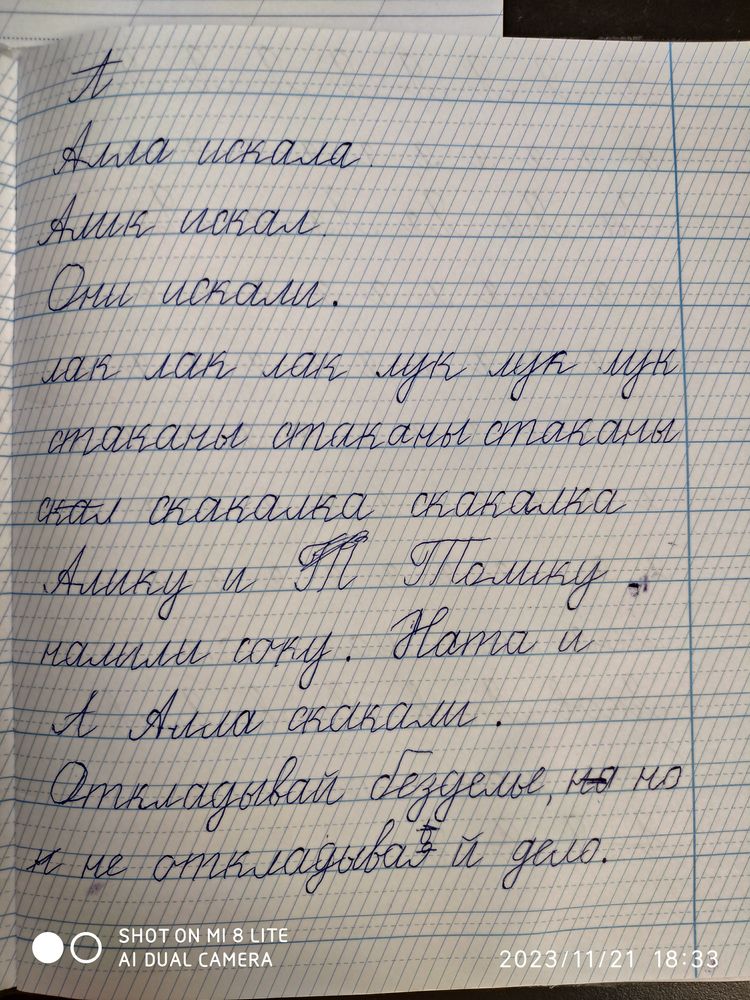 Л
Алла искала.
Алик искал.
Они искали.
лак лак лак лук лук лук
стаканы стаканы стаканы
скал скакалка скакалка
Алику и Т Толику
налили соку. Ната и
А Алла скакали.
Откладывай безделье, на но
н не откладывай дело.
SHOT ON MI 8 LITE
AI DUAL CAMERA
2023/11/21 18:33